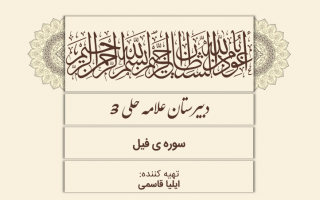 أعوذ بالله من الشیطان الرجیم بسم الله الرحمن الرحیم
دبیرستان علامه حلی 3
سوره ی فیل
تهیه کننده:
ایلیا قاسمی